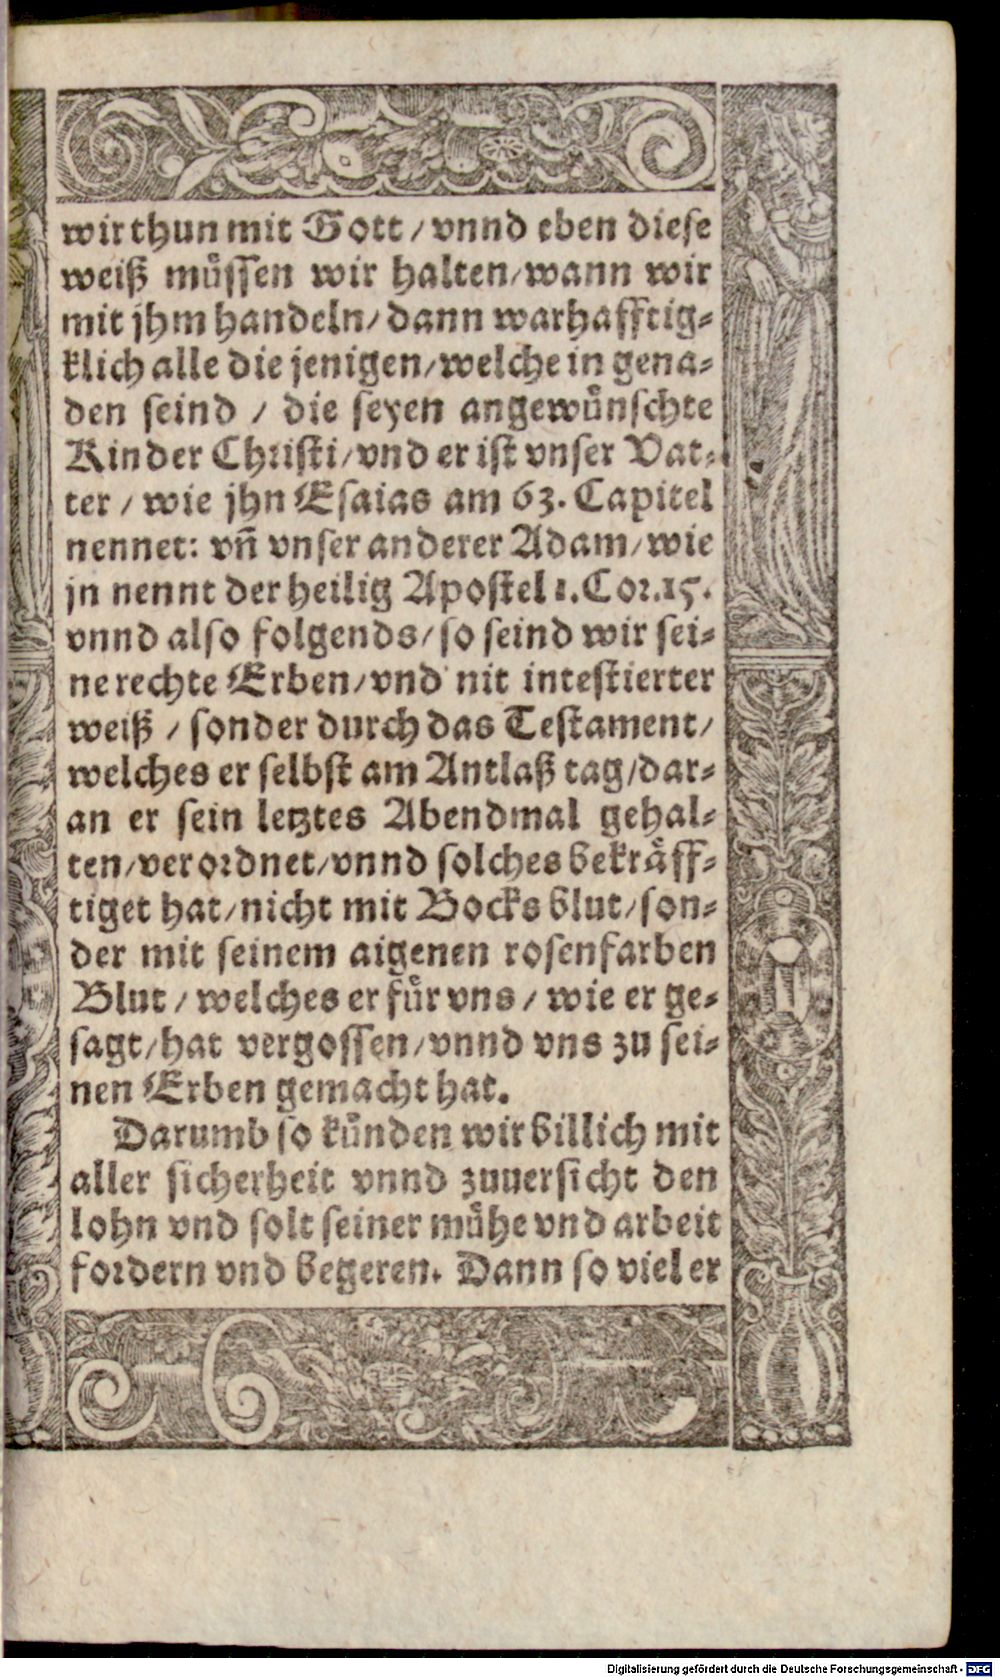 wir thun mit Gott / vnnd eben diese
weiß müssen wir halten / wann wir
mit jhm handeln / dann warhafftig-
klich alle die jenigen / welche in gena-
den seind / die seyen angewünschte
Kinder Christi / vnd er ist vnser Vat-
ter / wie jhn Esaias am 63. Capitel
nennet: vñ vnser anderer Adam / wie
jn nennt der heilig Apostel 1. Cor. 15.
vnnd also folgends / so seind wir sei-
ne rechte Erben / vnd nit intestierter
weiß / sonder durch das Testament /
welches er selbst am Antlaß tag / dar-
an er sein letztes Abendmal gehal-
ten / verordnet / vnnd solches bekräff-
tiget hat / nicht mit Bocks blut / son-
der mit seinem aigenen rosenfarben
Blut / welches er für vns / wie er ge-
sagt / hat vergossen / vnnd vns zu sei-
nen Erben gemacht hat.
Darumb so künden wir billich mit
aller sicherheit vnnd zuuersicht den
lohn vnd solt seiner mühe vnd arbeit
fordern vnd begeren. Dann so viel er
Digitalisierung gefördert durch die Deutsche Forschungsgemeinschaft - DFG